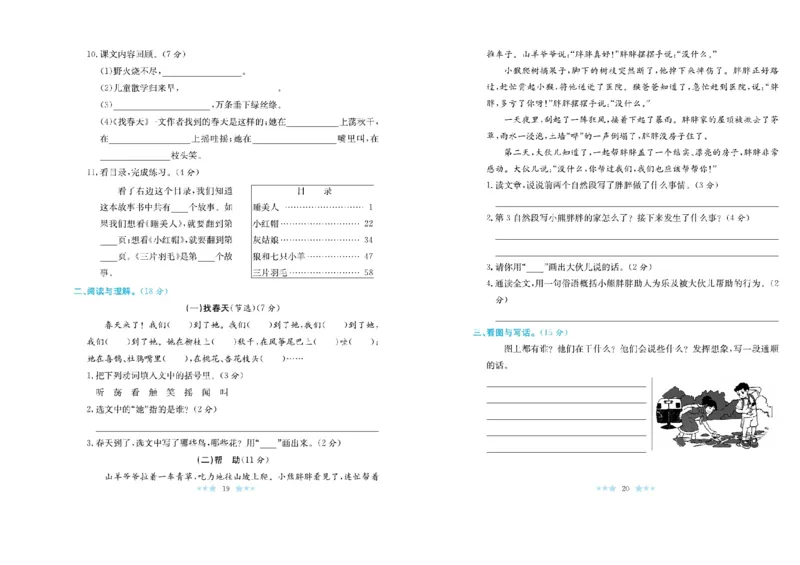 10.课文内容回顾。(7分)
(1)野火烧不尽,________________。
(2)儿童散学归来早,____________________。
(3)____________________,万条垂下绿丝绦。
(4)《找春天》一文作者找到的春天是这样的:她在____________上荡秋千,
在________________上摇哇摇;她在________________嘴里叫,在
______________枝头笑。
11.看目录,完成练习。(4分)
看了右边这个目录,我们知道
这本故事书中共有____个故事。如
果我们想看《睡美人》,就要翻到第
____页;想看《小红帽》,就要翻到第
____页。《三片羽毛》是第____个故
事。
目 录
睡美人 …………………… 1
小红帽 …………………… 22
灰姑娘 …………………… 34
狼和七只小羊 …………… 47
三片羽毛 ………………… 58
二、阅读与理解。(18分)
(一)找春天(节选)(7分)
春天来了!我们( )到了她。我们( )到了她,我们( )到了她,
我们( )到了她。她在柳枝上( )秋千,在风筝尾巴上( )哇( );
她在喜鹊、杜鹃嘴里( ),在桃花、杏花枝头( )……
1.把下列动词填入文中的括号里。(3分)
听 荡 看 触 笑 摇 闻 叫
2.选文中的“她”指的是谁?(2分)
3.春天到了,选文中写了哪些鸟,哪些花?用“____”画出来。(2分)
(二)帮 助(11分)
山羊爷爷拉着一车青草,吃力地往山坡上爬。小熊胖胖看见了,连忙帮着
19
推车子。山羊爷爷说:“胖胖真好!”胖胖摆摆手说:“没什么。”
小猴爬树摘果子,脚下的树枝突然断了,他摔下来摔伤了。胖胖正好路
过,赶忙背起小猴,将他送进了医院。猴爸爸知道了,急忙赶到医院,说:“胖
胖,多亏了你呀!”胖胖摆摆手说:“没什么。”
一天夜里,刮起了一阵狂风,接着下起了暴雨。胖胖家的屋顶被掀去了茅
草,雨水一浸泡,土墙“哗”的一声倒塌了,胖胖没房子住了。
第二天,大伙儿知道了,一起帮胖胖盖了一个结实、漂亮的房子,胖胖非常
感动。大伙儿说:“没什么,你帮过我们,我们也应该帮帮你!”
1.读文章,说说前两个自然段写了胖胖做了什么事情。(3分)
2.第3自然段写小熊胖胖的家怎么了?接下来发生了什么事?(4分)
3.请你用“____”画出大伙儿说的话。(2分)
4.通读全文,用一句俗语概括小熊胖胖助人为乐及被大伙儿帮助的行为。(2
分)
三、看图与写话。(15分)
图上都有谁?他们在干什么?他们会说些什么?发挥想象,写一段通顺
的话。
20